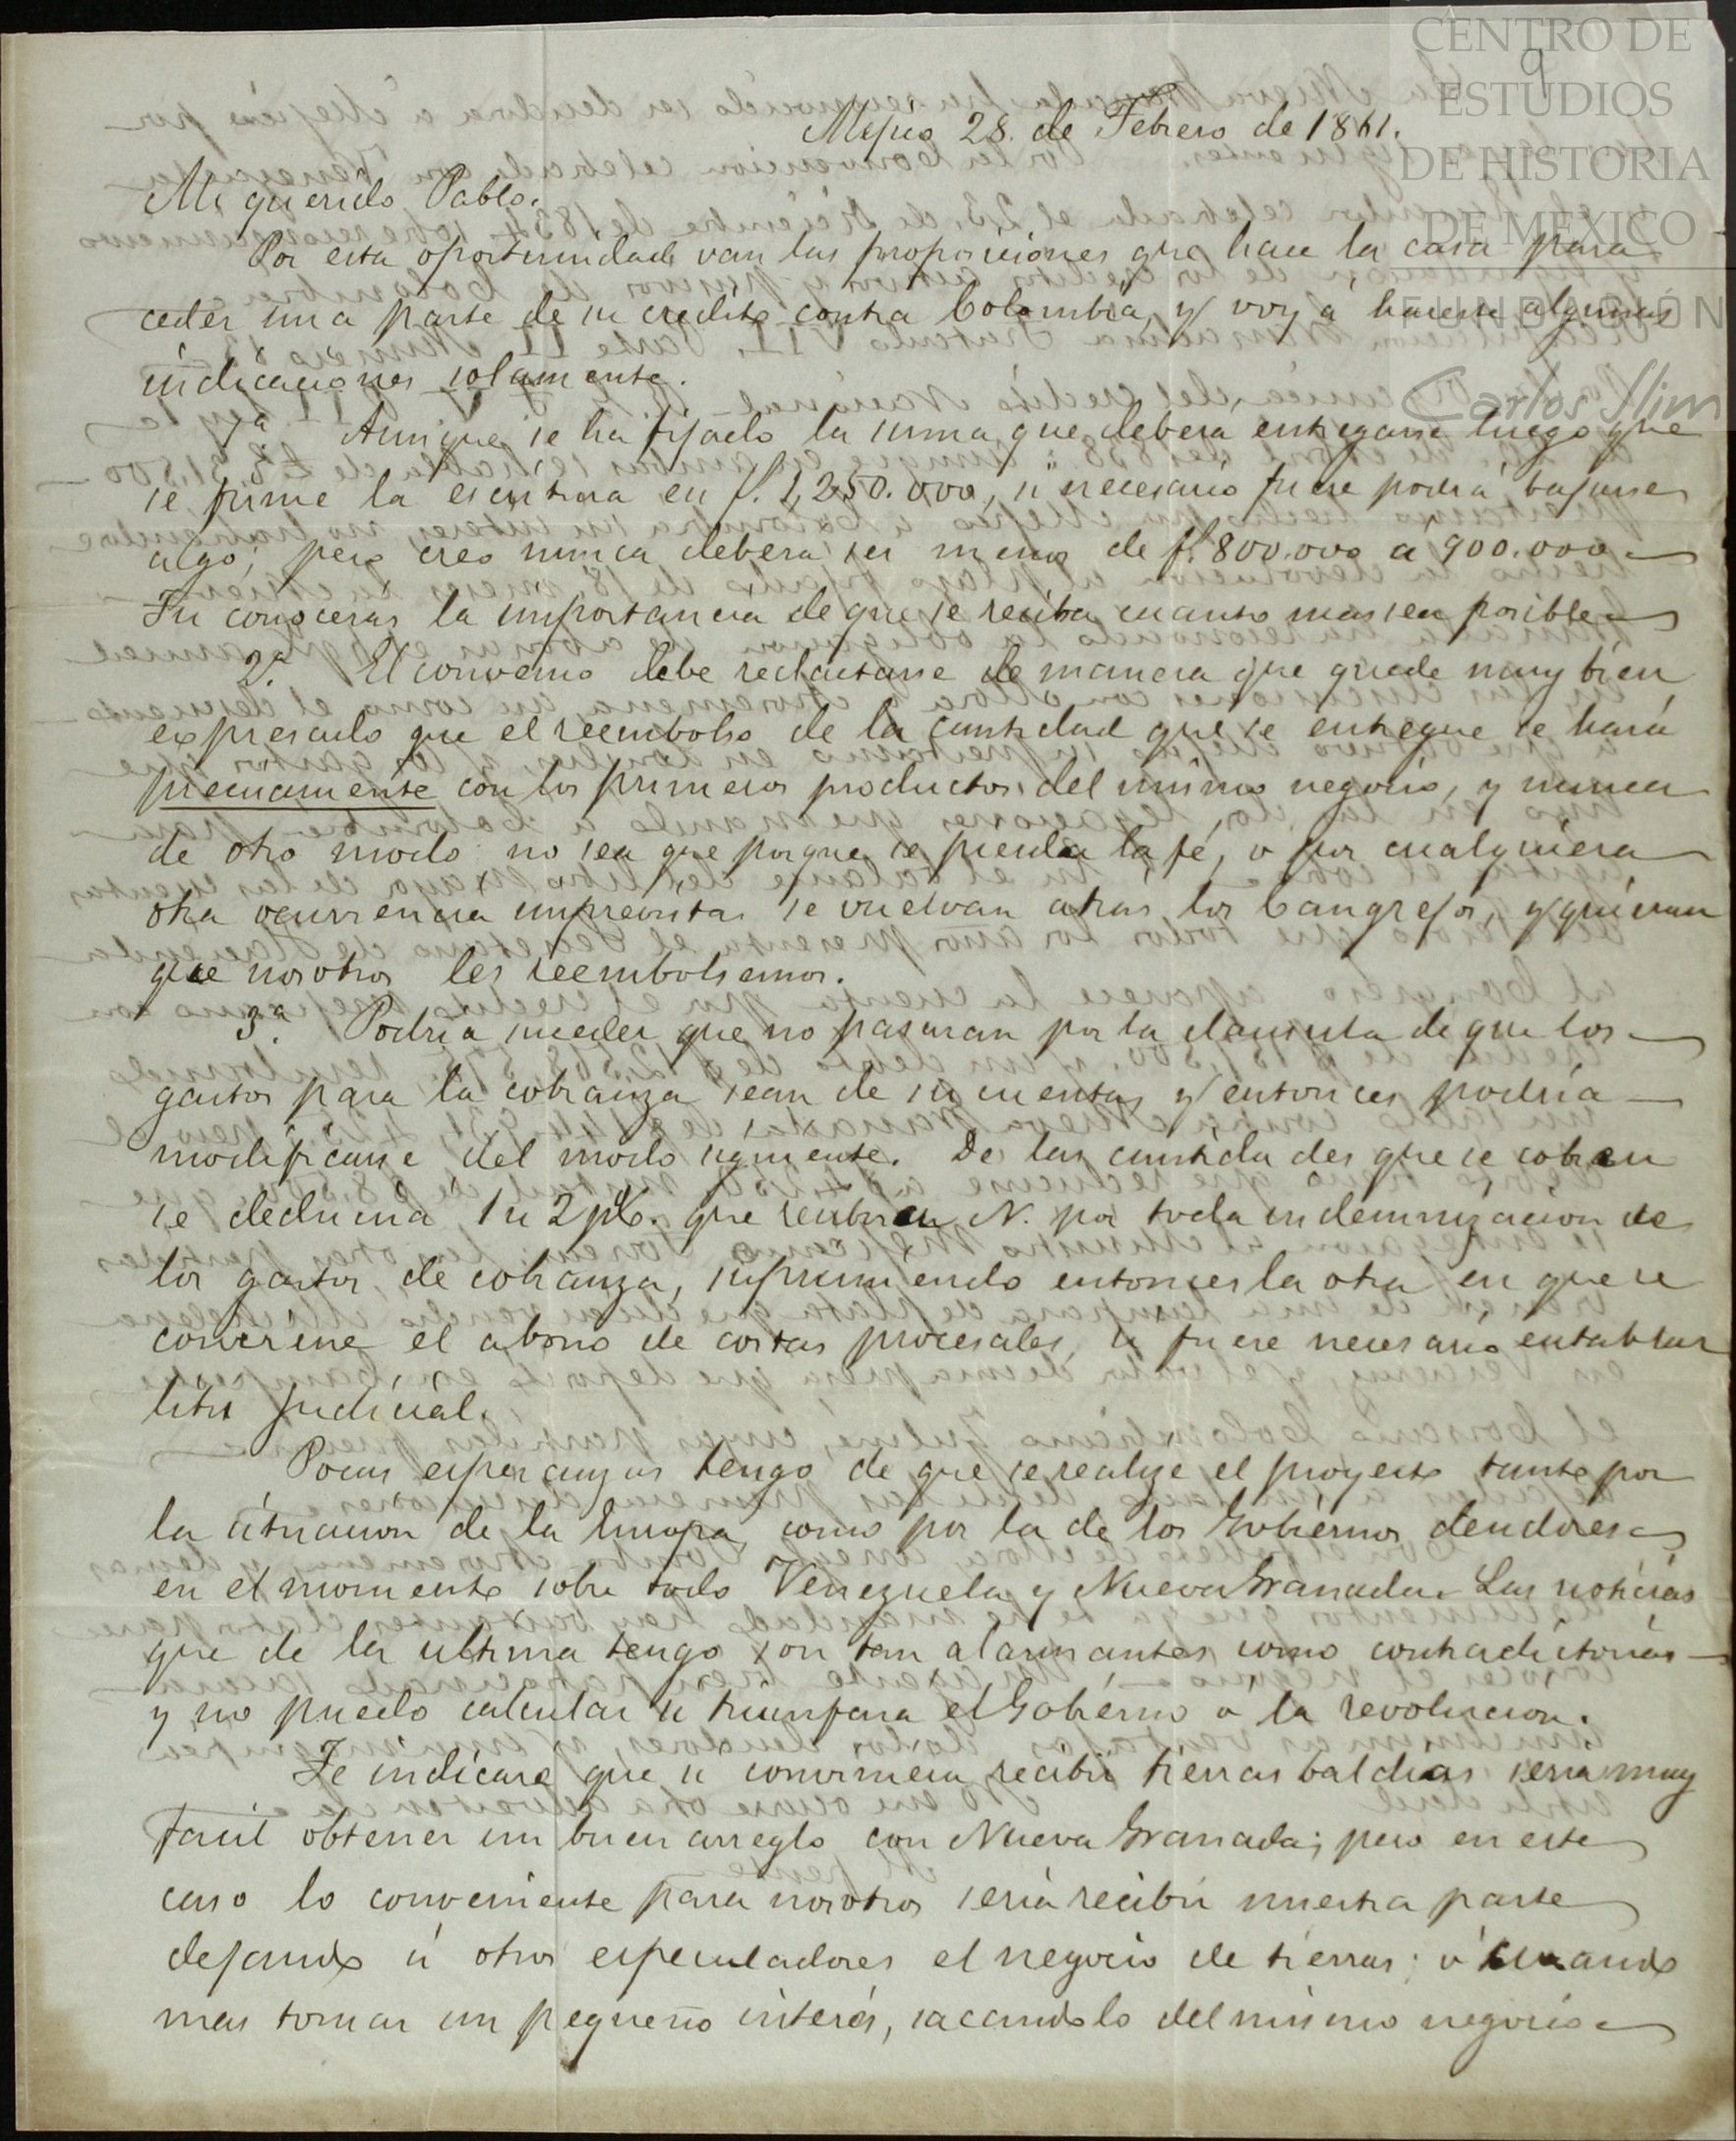 CENTRO DE
ESTUDIOS
DE HISTORIA
DE MÉXICO
FUNDACIÓN
Carlos Slim
9
Mejico 28. de Febrero de 1861.
Mi querido Pablo.
Por esta oportunidad van las proposiciones que hace la casa para
ceder una parte de su credito contra Colombia, y voy á hacerte algunas
indicaciones solamente.
1ª Aunque se ha fijado la suma que debera entregarse luego que
se firme la escritura en $. 1,250.000, si necesario fuere podrá bajarse
algo; pero creo nunca debera ser menos de $. 800.000 á 900.000
Tu conoceras la importancia de que se reciba cuanto mas sea posible
2ª El convenio debe redactarse de manera que quede muy bien
expresado que el reembolso de la cantidad que se entregue se hará
precisamente con los primeros productos del mismo negocio, y nunca
de otro modo: no sea que porque se pierda la fé, o por cualquiera
otra ocurrencia imprevista se vuelvan atras los Cangrejos, y quieran
que nosotros les reembolsemos.
3ª Podria suceder que no pasaran por la clausula de que los
gastos para la cobranza sean de su cuenta, y entonces podria
modificarse del modo siguiente. De las cantidades que se cobren
se deducira 1 u 2 p%. que recibiran N. por toda indemnizacion de
los gastos de cobranza, suprimiendo entonces la otra en que se
conviene el abono de costas procesales, si fuere necesario entablar
litis judicial.
Pocas esperanzas tengo de que se realize el proyecto tanto por
la situacion de la Europa, como por la de los Gobiernos deudores
en el momento sobre todo Venezuela y Nueva Granada. Las noticias
que de la ultima tengo son tan alarmantes como contradictorias
y no puedo calcular si triunfara el Gobierno o la revolucion.
Te indicare que si conviniera recibir tierras baldias seria muy
facil obtener un buen arreglo con Nueva Granada; pero en este
caso lo conveniente para nosotros seria recibir nuestra parte
dejando á otros especuladores el negocio de tierras: ó cuando
mas tomar un pequeño interés, sacandolo del mismo negocio